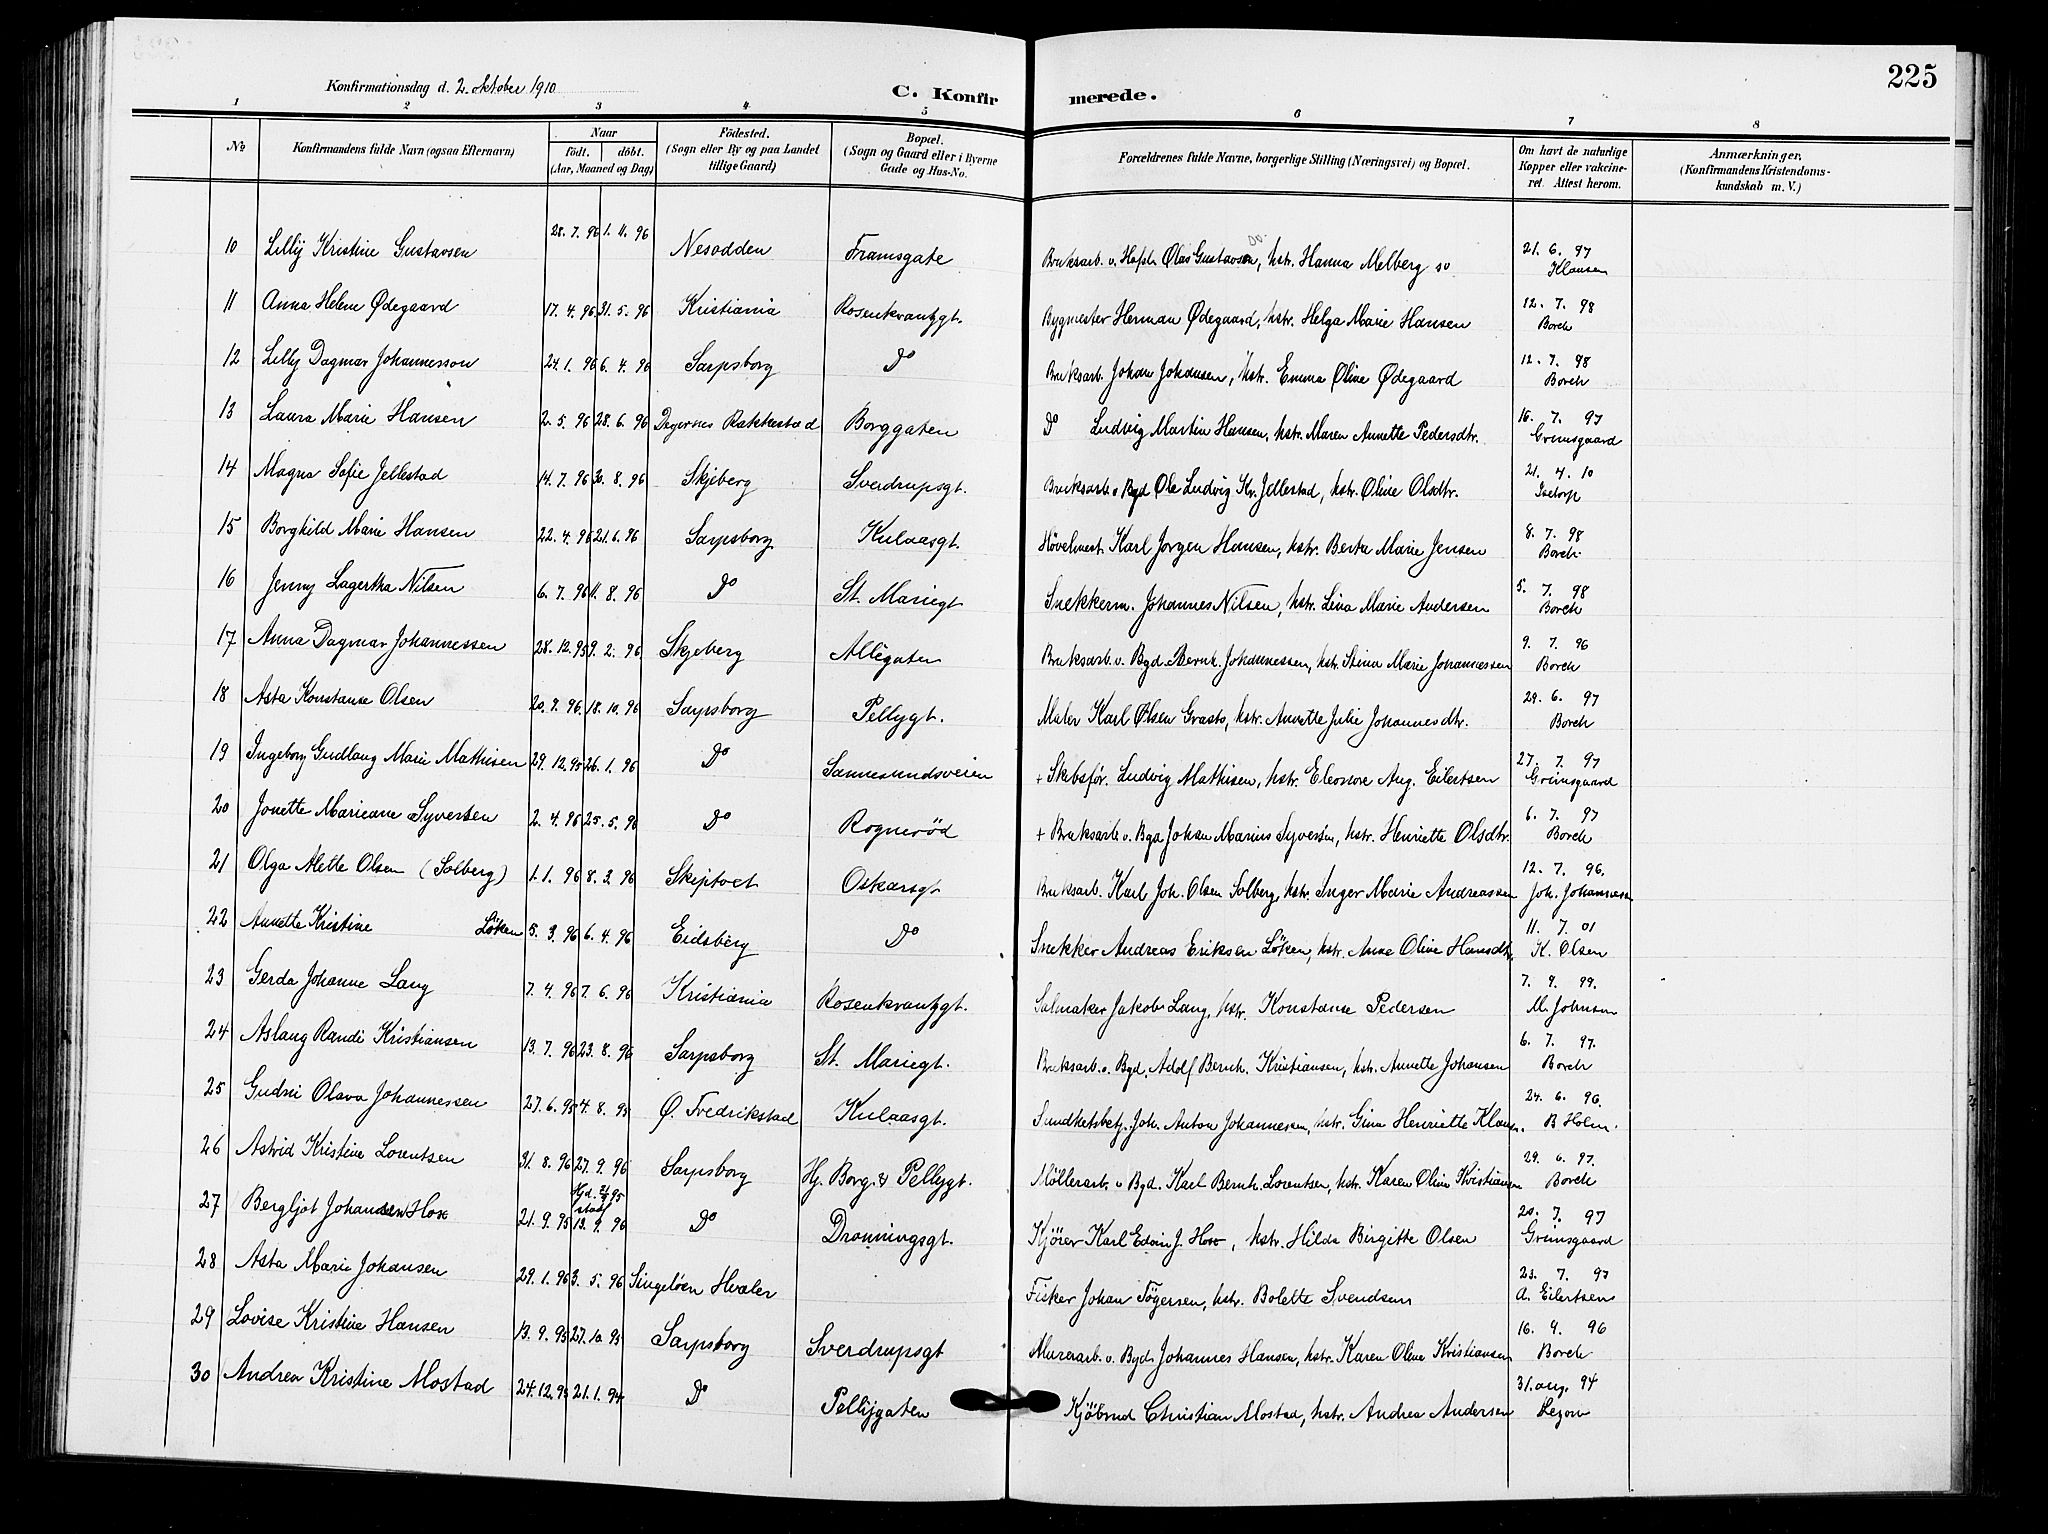 225
Konfirmationsdag d. 2. oktober 1910
C. Konfirmerede.
1 2 3 4 5 6 7 8
No Konfirmandens fulde Navn (ogsaa Efternavn) Naar födt. döbt. (Aar, Maaned og Dag) Födested. (Sogn eller By og paa Landet tillige Gaard) Bopæl. (Sogn og Gaard eller i Byerne Gade og Hus-No. Forældrenes fulde Navne, borgerlige Stilling (Næringsvei) og Bopæl. Om havt de naturlige Kopper eller vakcineret. Attest herom. Anmærkninger, (Konfirmandens Kristendomskundskab m. V.)
10 Lilly Kristine Gustavsen 28. 7. 96 1. 11. 96 Nesodden Framsgate Bruksarb. v. Hafsl. Olas Gustavsen, hstr. Hanna Melberg 21. 6. 97 Klausen
11 Anna Helene Ødegaard 17. 4. 96 31. 5. 96 Kristiania Rosenkrantzgt. Bygmester Herman Ødegaard, hstr. Helga Marie Hansen 12. 7. 98 Borch
12 Lilly Dagmar Johannesson 24. 1. 96 6. 4. 96 Sarpsborg Do Bruksarb. Johan Johansen, hstr. Emma Oline Ødegaard 12. 7. 98 Borch
13 Laura Marie Hansen 2. 5. 96 28. 6. 96 Degernes Rakkestad Borggaten Do Ludvig Martin Hansen, hstr. Maren Annette Pedersdtr. 16. 7. 97 Grimsgaard
14 Magna Sofie Jellestad 14. 7. 96 30. 8. 96 Skjeberg Sverdrupsgt. Bruksarb v Bgd Ole Ludvig Kr. Jellestad, hstr. Oline Olsdtr. 21. 4. 10 Isetorp
15 Borghild Marie Hansen 22. 4. 96 21. 6. 96 Sarpsborg Kulaasgt. Hövelmest. Karl Jorgen Hansen, hstr. Berta Marie Jensen 8. 7. 98 Borch
16 Jenny Lagertha Nilsen 6. 7. 96 11. 8. 96 Do St. Mariegt Snekkerm. Johannes Nilsen, hstr. Lina Marie Andersen 5. 7. 98 Borch
17 Anna Dagmar Johannessen 28. 12. 95 9. 2. 96 Skjeberg Allégaten Bruksarb. v. Bgd. Bernh. Johannessen, hstr. Stina Marie Johannessen 9. 7. 96 Borch
18 Asta Konstanse Olsen 20. 9. 96. 18. 10. 96 Sarpsborg Pellygt. Maler Karl Olsen hstr. Annette Julie Johannesdtr. 29. 6. 97 Borch
19 Ingeborg Gudlaug Marie Mathisen 29. 12. 95 26. 1. 96 Do Sannesundsveien + Skibsför. Ludvig Mathisen, hstr. Eleonore Aug. Eilertsen 27. 7. 97 Grimsgaard
20 Jonette Mariane Syversen 2. 4. 96 25. 5. 96 Do Rognerød + Bruksarb v. Bgd Johan Marius Syversen, hstr. Henriette Olsdtr. 6. 7. 97 Borch
21 Olga Alette Olsen (Solberg) 1. 1. 96 8. 3. 96 Skiptvet Oskarsgt. Bruksarb. Karl Joh. Olsen Solberg, hstr. Inger Marie Andreassen 12. 7. 96. Joh. Johannessen
22 Annette Kristine Löken 5. 3. 96 6. 4. 96 Eidsberg Do Snekker Andreas Eriksen Löken, hstr. Anne Oline Hansdtr. 11. 7. 01 K. Olsen
23 Gerda Johanne Lang 7. 4. 96 7. 6. 96 Kristiania Rosenkrantzgt. Salmaker Jakob Lang, hstr. Konstanse Pedersen 7. 9. 99. M. Johnsen
24 Aslaug Randi Kristiansen 13. 7. 96 23. 8. 96 Sarpsborg St. Mariegt. Bruksarb. v. Bgd. Adolf Bernh. Kristiansen, hstr. Annette Johansen 6. 7. 97. Borch
25 Gudrun Olava Johannessen 27. 6. 95 4. 8. 95 Ø. Fredrikstad Kulaasgt. Sundhetsbetj. Joh. Anton Johannessen, hstr. Gina Henriette Klausen. 24. 6. 96. B Holm.
26 Astrid Kristine Lorentsen 31. 8. 96 27. 9. 96 Sarpsborg Hj. Borg. & Pellygt. Möllerarb v Bgd. Karl Bernh. Lorentsen, hstr. Karen Oline Kristiansen 29. 6. 97. Borch
27 Bergljot Johansen Hox 21. 9. 95 Hjd. 95 stadf 13. 9. 96 Do Dronningsgt. Kjörer Karl Edvin J. Hox, hstr. Hilda Birgitte Olsen 20. 7. 97 Grimsgaard
28 Asta Marie Johansen 29. 1. 96 3. 5. 96 Singelöen Hvaler Fisker Johan Tögersen, hstr. Bolette Svendsen 23. 7. 97 A. Eilertsen
29 Lovise Kristine Hansen 13. 9. 95 27. 10. 95 Sarpsborg Sverdrupsgt Murerarb. v. Byd Johannes Hansen, hstr. Karen Oline Kristiansen 16. 9. 96 Borch
30 Andrea Kristine Mostad 24. 12. 93 21. 1. 94 Do Pellygaten Kjöbmd Christian Mostad, hstr. Andrea Andersen 31. aug. 94